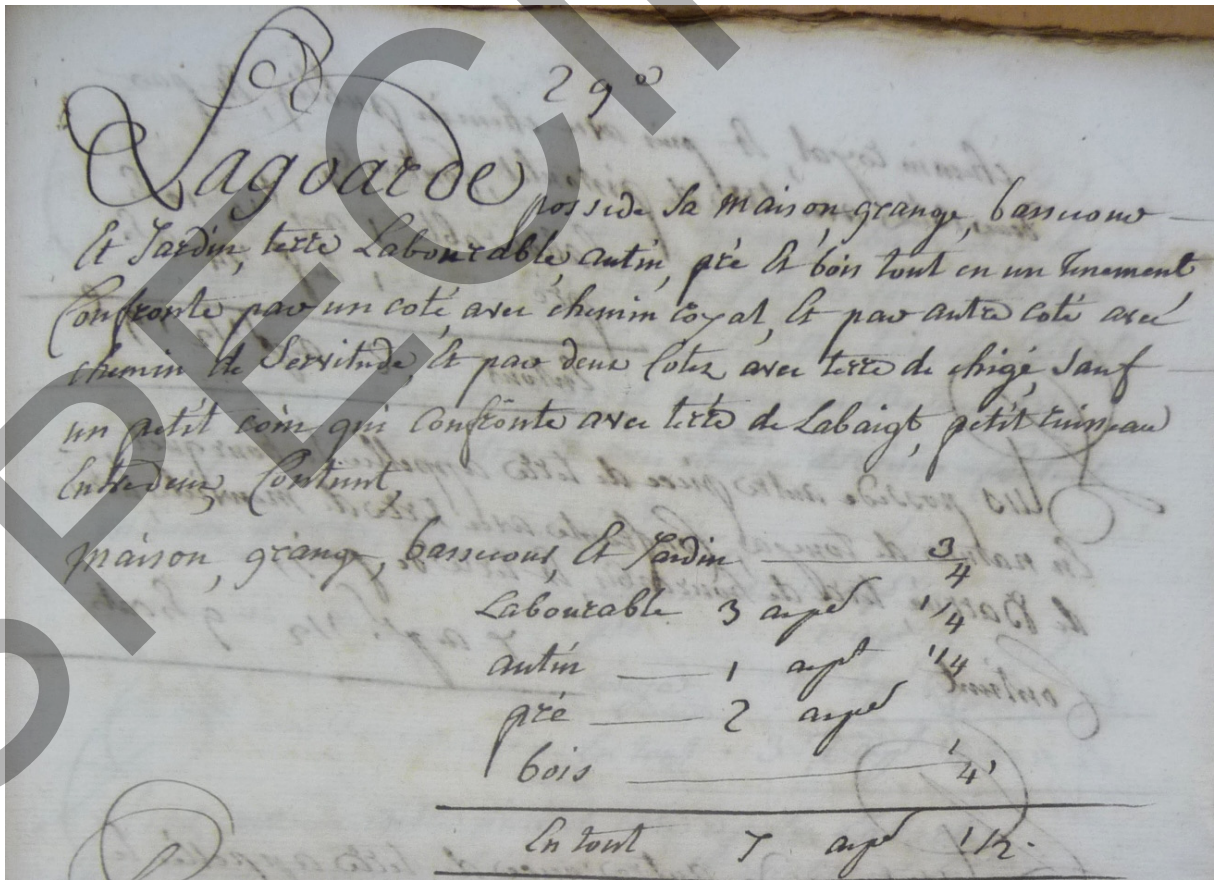 29e
Lagoarde possede sa maison, grange, bassecour
Et Jardin, terre Labourable, autin, pré Et bois tout en un tenement
Confronte par un coté avec chemin royal, Et par autre coté avec
chemin de Servitude, Et par deux Cotez avec terre de chigé, Sauf
un petit coin qui confronte avec terre de Labaigt, petit ruisseau
Entredeux, Contient
maison, grange, bassecour, Et Jardin 3/4
Labourable 3 arpt 1/4
autin 1 arpt 1/4
pré 2 arpt
bois 1/4
En tout 7 arpt 1/2.
SPECI